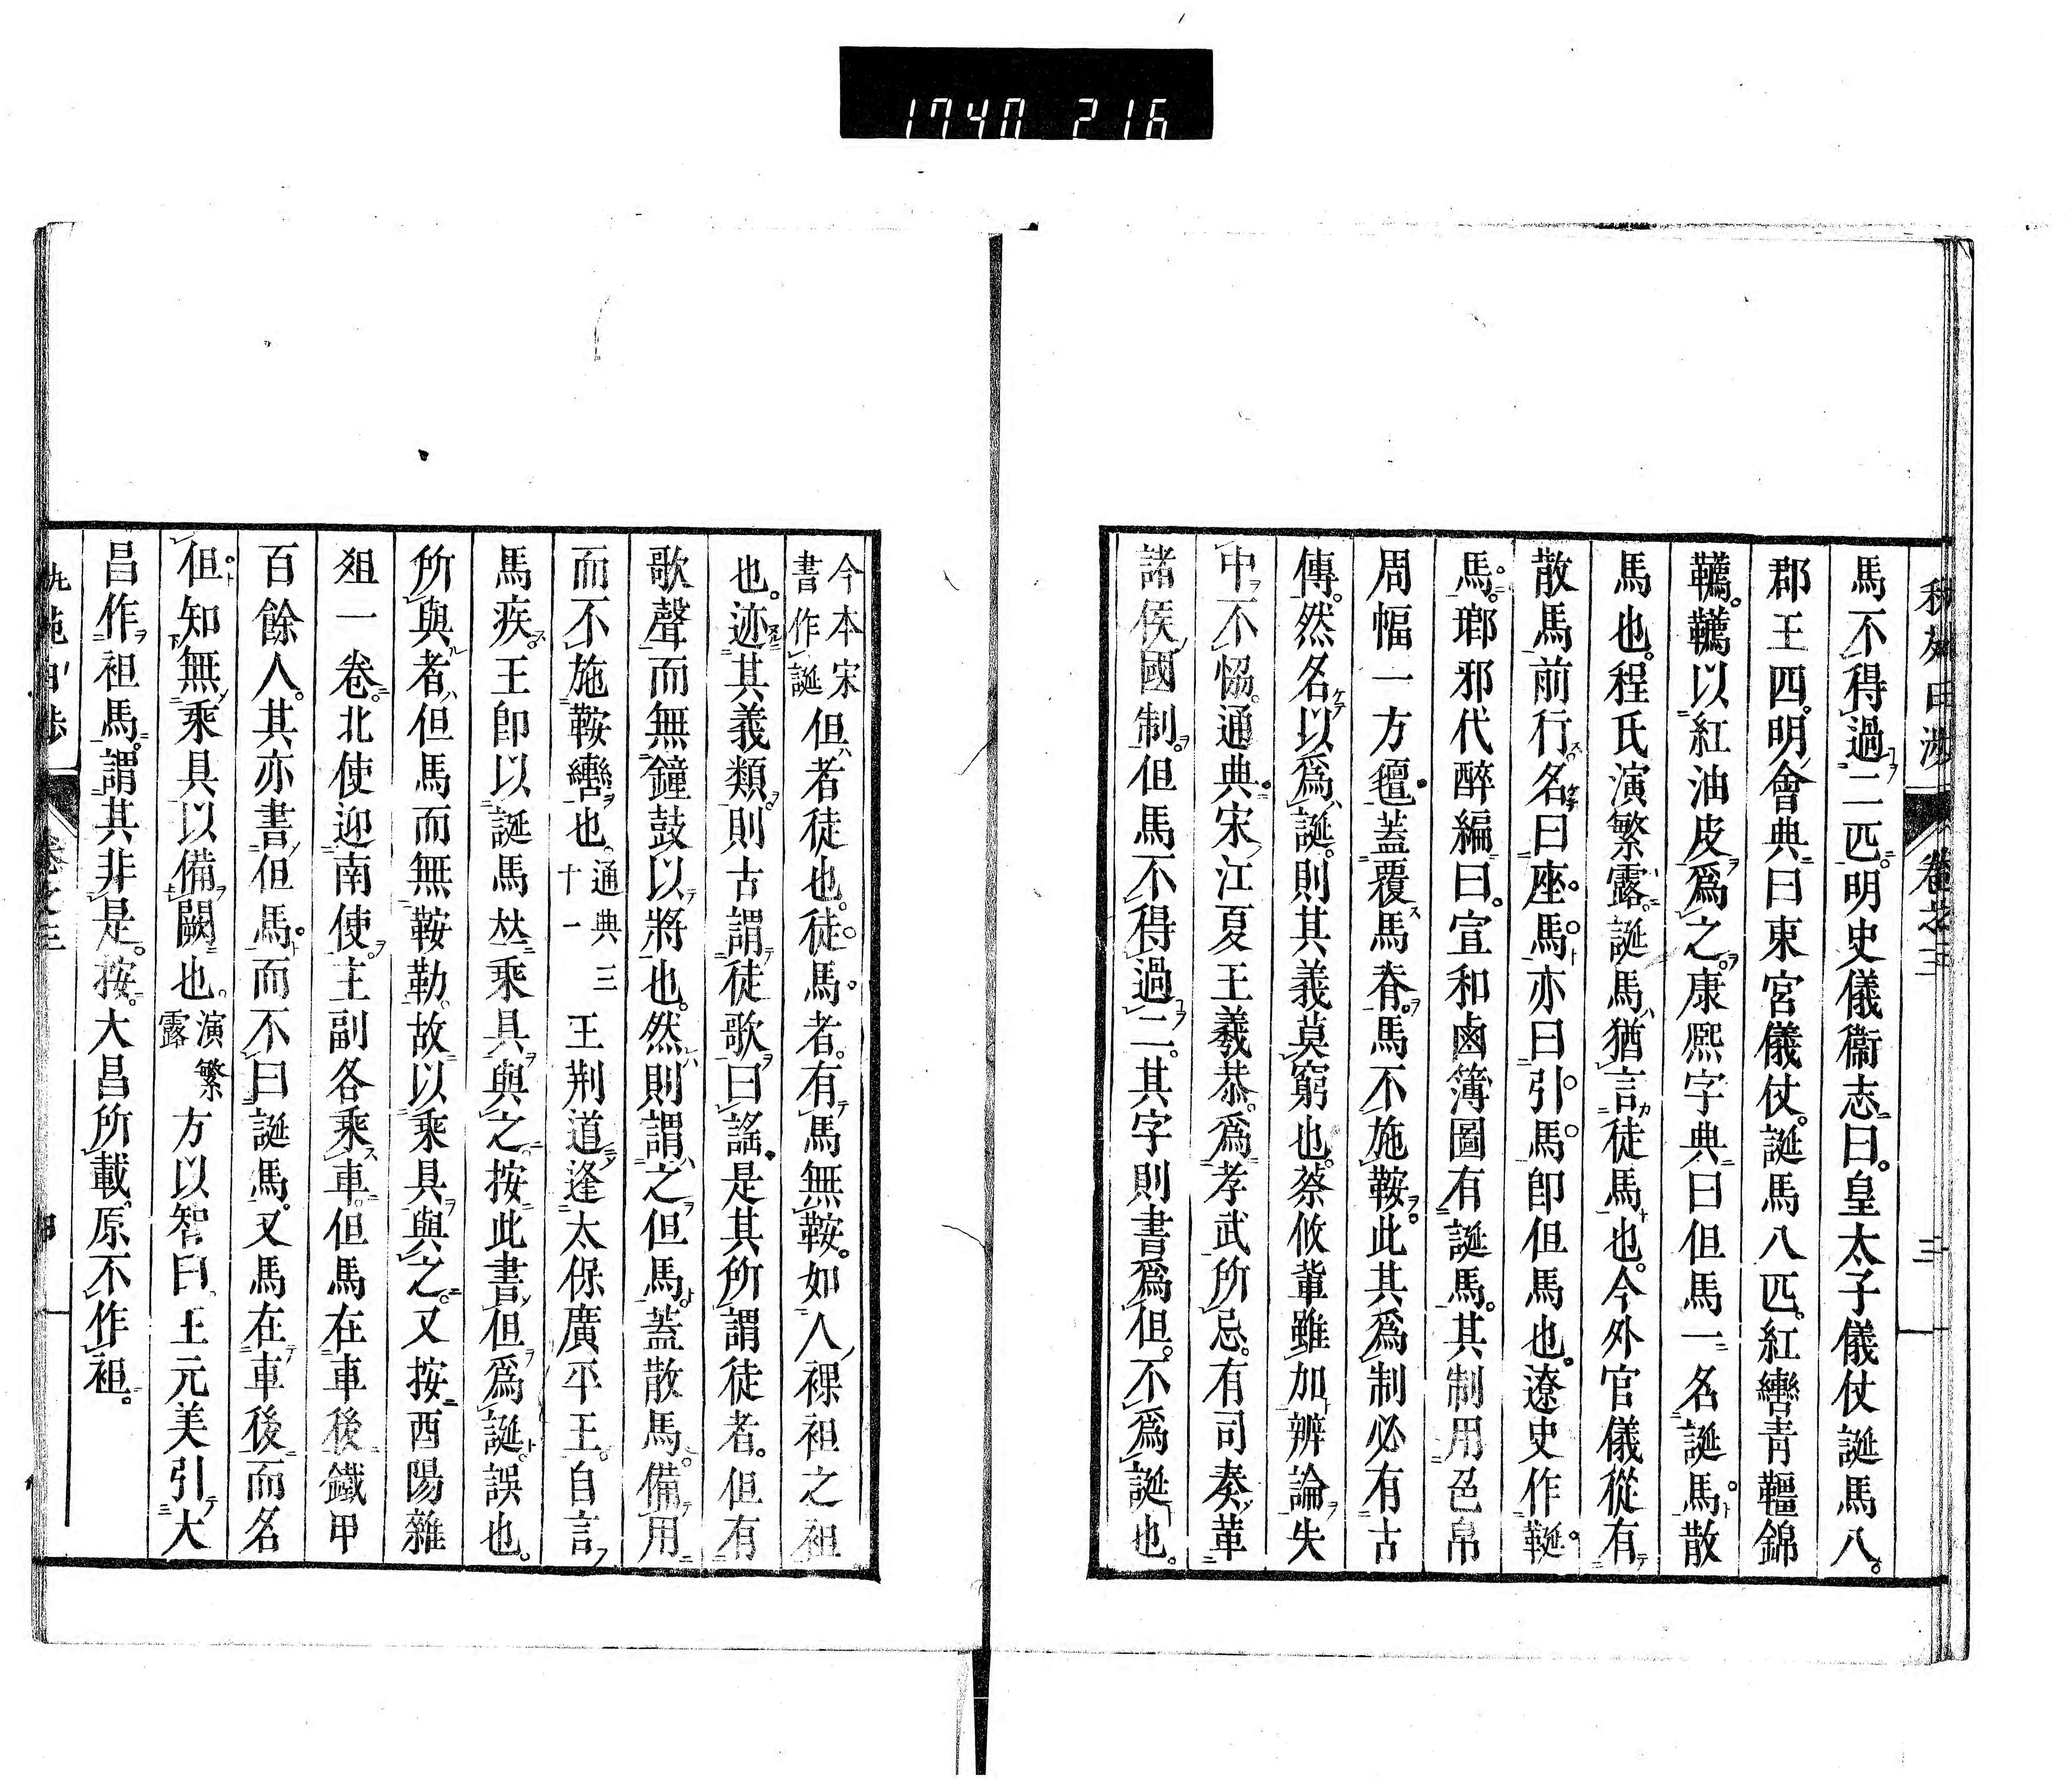 1740 216
卷之三 三
馬不得過二匹明史儀衞志曰皇太子儀仗誕馬八
郡王四明會典曰東宮儀仗誕馬八匹紅轡青韁錦
韉韉以紅油皮爲之康熙字典曰但馬一名誕馬散
馬也程氏演繁露誕馬猶言徒馬也今外官儀從有
散馬前行名曰座馬亦曰引馬卽但馬也遼史作䩥
馬瑯邪代醉編曰宣和鹵簿圖有誕馬其制用色帛
周幅一方氊蓋覆馬脊馬不施鞍此其爲制必有古
傳然名以爲誕則其義莫窮也蔡攸輩雖加辨論失
中不恊通典宋江夏王羲恭爲孝武所忌有司奏革
諸侯國制但馬不得過二其字則書爲但不爲誕也
今本宋
書作誕
但者徒也徒馬者有馬無鞍如人裸袒之袒
也迹其義類則古謂徒歌曰謠是其所謂徒者但有
歌聲而無鐘鼓以將也然則謂之但馬蓋散馬備用
而不施鞍轡也
通典三
十一
王荆道逢太保廣平王自言
馬疾王卽以誕馬𠀤乘具與之按此書但爲誕誤也
所與者但馬而無鞍勒故以乘具與之又按酉陽雜
俎一卷北使迎南使主副各乘車但馬在車後鐵甲
百餘人其亦書但馬而不曰誕馬又馬在車後而名
但知無乘具以備闕也
演繁
露
方以智曰王元美引大
昌作袒馬謂其非是按大昌所載原不作袒
卷之三